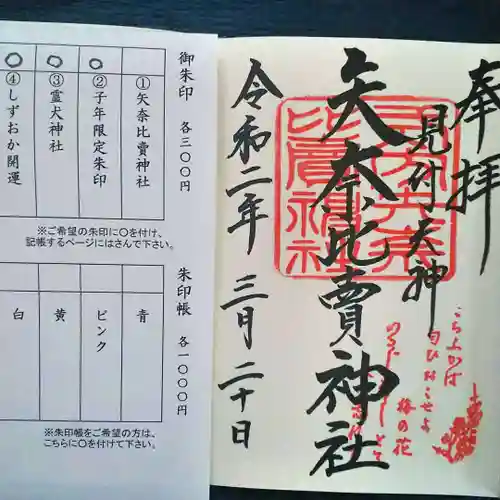 御朱印 各三〇〇円
①矢奈比賣神社
②子年限定朱印
③霊犬神社
④しずおか開運
※ご希望の朱印に〇を付け、
記帳するページにはさんで下さい。
朱印帳 各一〇〇〇円
青
ピンク
黄
白
※朱印帳をご希望の方は、
こちらに〇を付けて下さい。
奉拝
見付天神
矢奈比賣神社
令和二年 三月二十日
こちふかば
匂ひおこせよ
梅の花